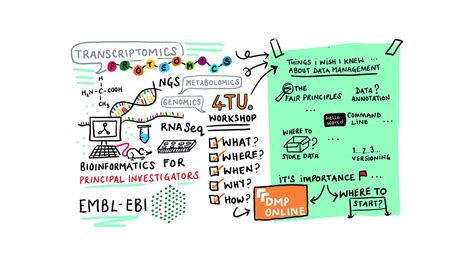 TRANSCRIPTOMICS
PROTEOMICS
CH₃
H₂N
C
COOH
H
NGS
METABOLOMICS
GENOMICS
RNA Seq
BIOINFORMATICS FOR
PRINCIPAL INVESTIGATORS
EMBL-EBI
4TU.
WORKSHOP
WHAT?
WHERE?
WHEN?
WHY?
HOW?
THINGS I WISH I KNEW
ABOUT DATA MANAGEMENT
THE
FAIR PRINCIPLES
DATA?
ANNOTATION
hello
world
COMMAND
LINE
WHERE TO
STORE DATA
1...2...3...
VERSIONING
IT'S IMPORTANCE
DMP
ONLINE
WHERE TO
START?